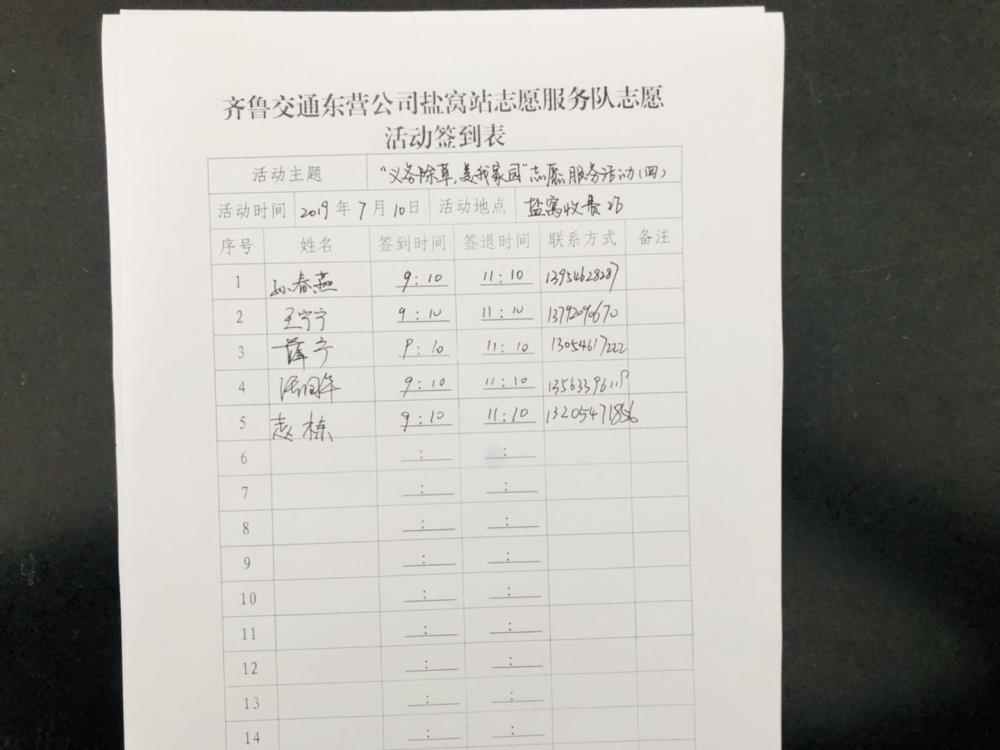 齐鲁交通东营公司盐窝站志愿服务队志愿
活动签到表
活动主题 "义务除草,美我家园"志愿服务活动(四)
活动时间 2019年7月10日 活动地点 盐窝收费站
序号 姓名 签到时间 签退时间 联系方式 备注
1 孙春燕 9:10 11:10 13954628287
2 王宁宁 9:10 11:10 13792090670
3 薛宁 9:10 11:10 13054617222
4 9:10 11:10
5 赵栋 9:10 11:10 13205471856
6 : :
7 : :
8 : :
9 : :
10 : :
11 : :
12 : :
13 : :
14 : :